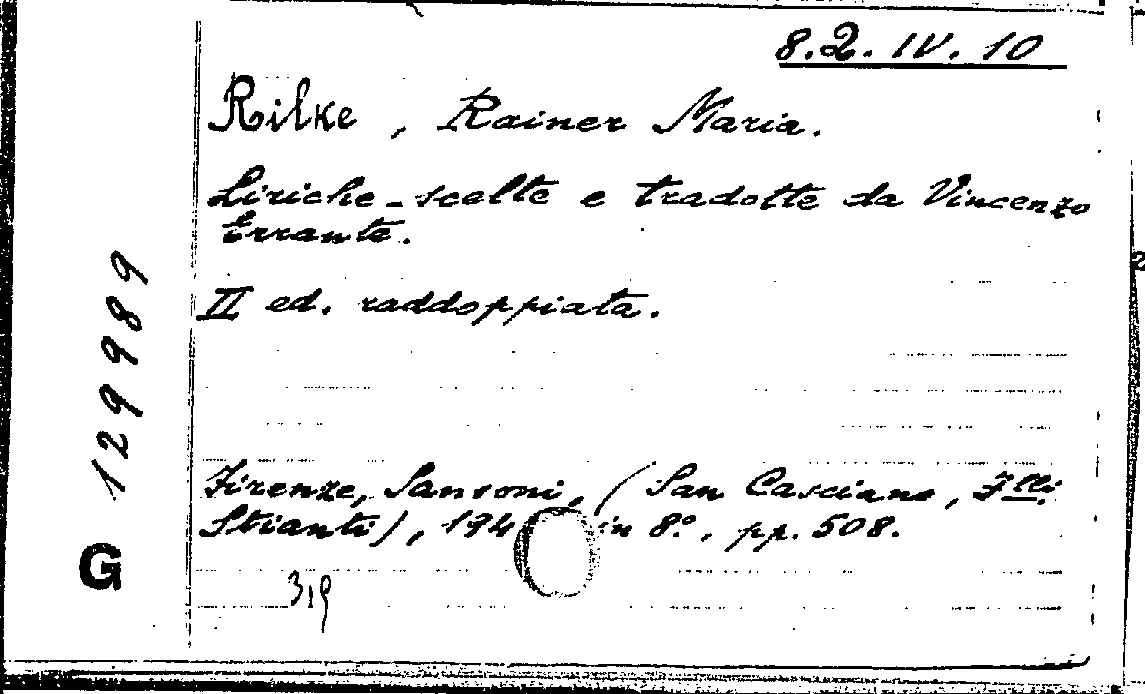 8.2.IV.10
Rilke, Rainer Maria.
Liriche - scelte e tradotte da Vincenzo
Errante.
II ed. raddoppiata.
Firenze, Sansoni, (San Casciano, F.lli
Stianti), 194 in 8°, pp. 508.
319
G 129989